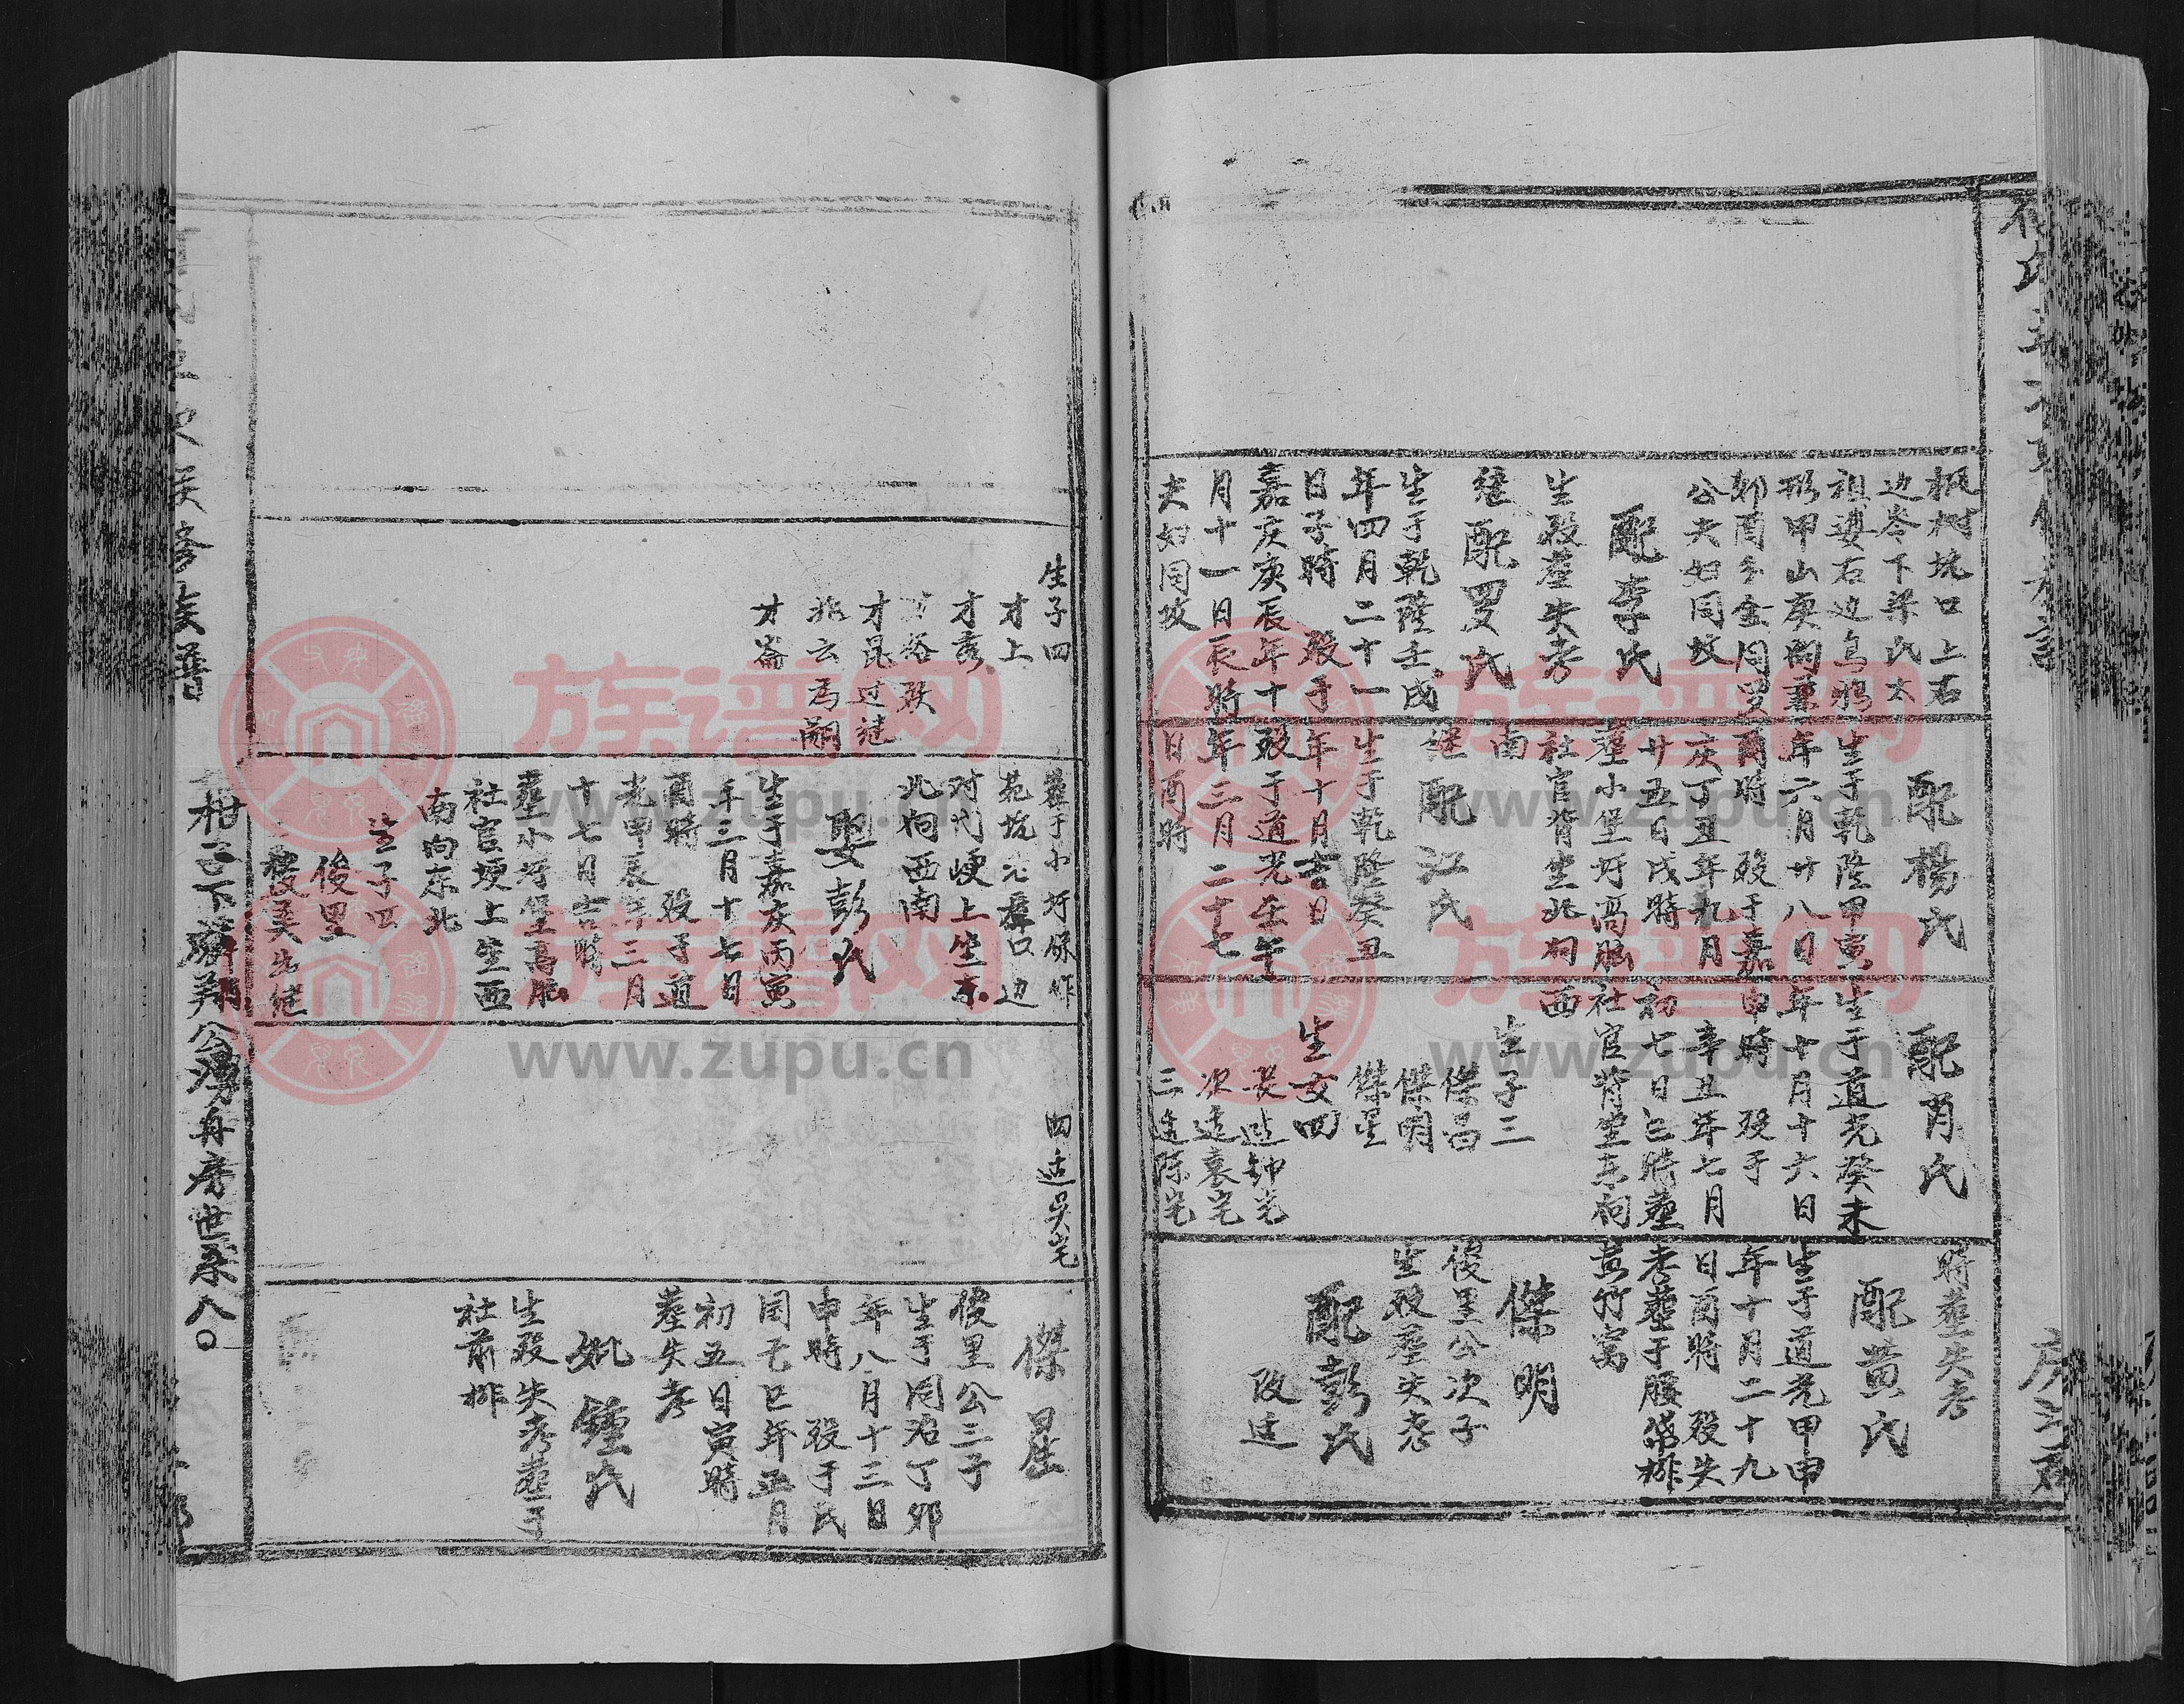 枫树坑口上右
边岺下梁氏太
祖墳右边烏鴉
形甲山庚向兼
卯酉分金同罗
公夫妇同坟
配李氏
生殁塟失考
继配罗氏
生于乾隆壬戌
年四月二十一
日子時 殁于
嘉庆庚辰年十
月十一日辰時
夫妇同坟
配楊氏
生于乾隆甲寅
年六月廿八日
酉時 殁于嘉
庆丁丑年九月
廿五日戌時
塟小堡圩高胐
社官背坐北向
南
继配江氏
生于乾隆癸丑
年十月吉日
殁于道光壬午
年三月二十七
日酉時
配肖氏
生于道光癸未
年十月十六日
申時 殁于
辛丑年七月
初七日巳時塟
社官背坐东向
西
生子三
傑昌
傑明
傑星
生女四
長适钟宅
次适袁宅
三适陈宅
時塟失考
配黄氏
生于道光甲申
年十月二十九
日酉時 殁失
考塟于腰带排
黄竹窝
傑明
俊里公次子
生殁塟失考
配彭氏
改适
生子四
才上
才秀
才裕殁
才昆过继
兆云为嗣
才崙
塟于小圩保作
苑坑尾寨口边
对门崠上坐东
北向西南
娶彭氏
生于嘉庆丙寅
年三月十七日
酉時 殁于道
光甲辰年三月
十七日吉時
塟小圩堡高胐
社官埂上坐西
南向东北
生子四
俊里
俊美出继
四适吴宅
傑星
俊里公三子
生于同治丁卯
年八月十三日
申時 殁于民
国己巳年正月
初五日寅時
塟失考
妣鍾氏
生殁失考塟于
社前排
柑子下騰翔公濟舟房世系八〇
族谱网
www.zupu.cn
族谱网
www.zupu.cn
族谱网
www.zupu.cn
族谱网
www.zupu.cn